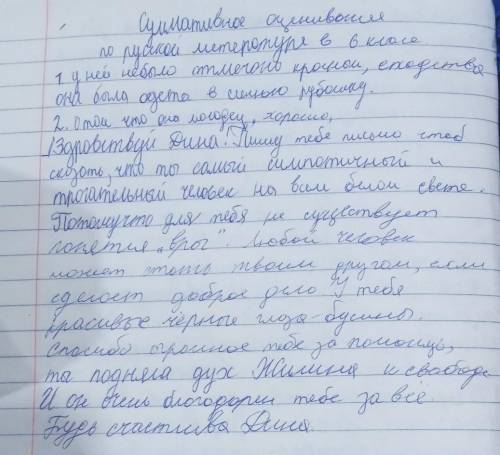 Суммативное оценивание
по русской литературе в 6 класе
1. у неё небыло отмечоно красным, сходства
она была одета в синюю рубашку.
2. О том что она молодец, хорошо,
Здравствуй Дина! Пишу тебе письмо чтоб
сказать, что ты самый симпотичный и
трогательный человек на всем белом свете.
Потомучто для тебя не существует
понятия "враг". Любой человек
может стать твоим другом, если
сделает доброе дело У тебя
красивые чёрные глаза-бусины.
спасибо огромное тебе за помощь,
ты подняла дух Жилина к свабоде
И он очень благодарен тебе за всё.
Будь счастлива Дина.